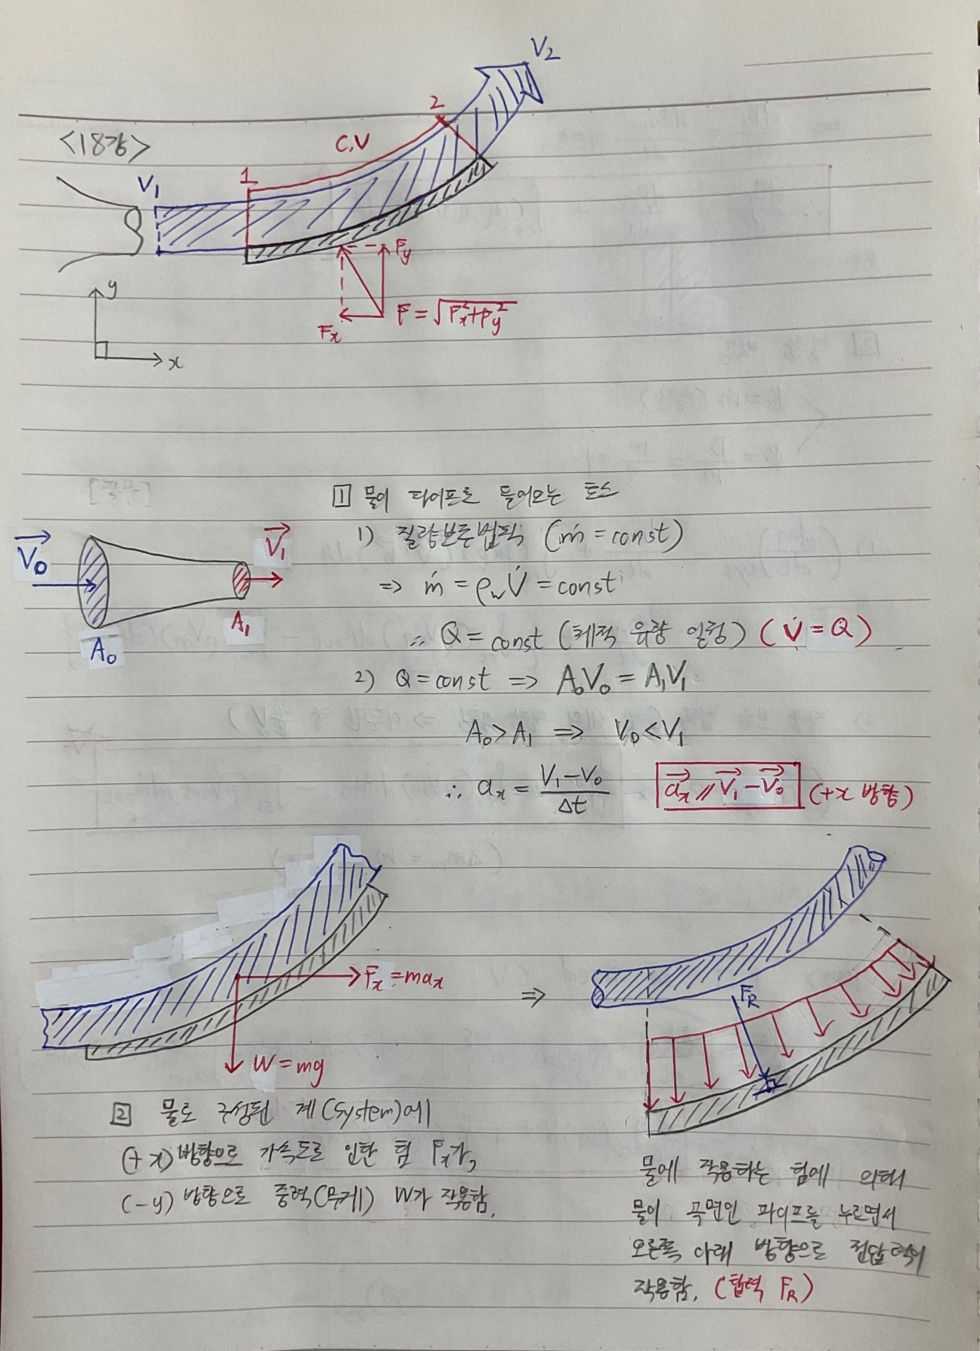 <18강>
V₁
1
C.V
2
V₂
y
x
Fx
Fy
F = √(Fx²+Fy²)
1 물이 파이프로 들어오는 노즐
1) 질량보존법칙 (ṁ = const)
⇒ ṁ = ρw V̇ = const
∴ Q = const (체적 유량 일정) (V̇ = Q)
2) Q = const ⇒ A₀V₀ = A₁V₁
A₀ > A₁ ⇒ V₀ < V₁
∴ ax = (V₁ - V₀)/Δt
ax // V₁ - V₀ (+x 방향)
V₀
V₁
A₀
A₁
Fx = max
W = mg
⇒
FR
2 물로 구성된 계(System)에
(+x)방향으로 가속도로 인한 힘 Fx가,
(-y) 방향으로 중력(무게) W가 작용함.
물에 작용하는 힘에 의해
물이 곡면인 파이프를 누르면서
오른쪽 아래 방향으로 전압력이
작용함. (합력 FR)